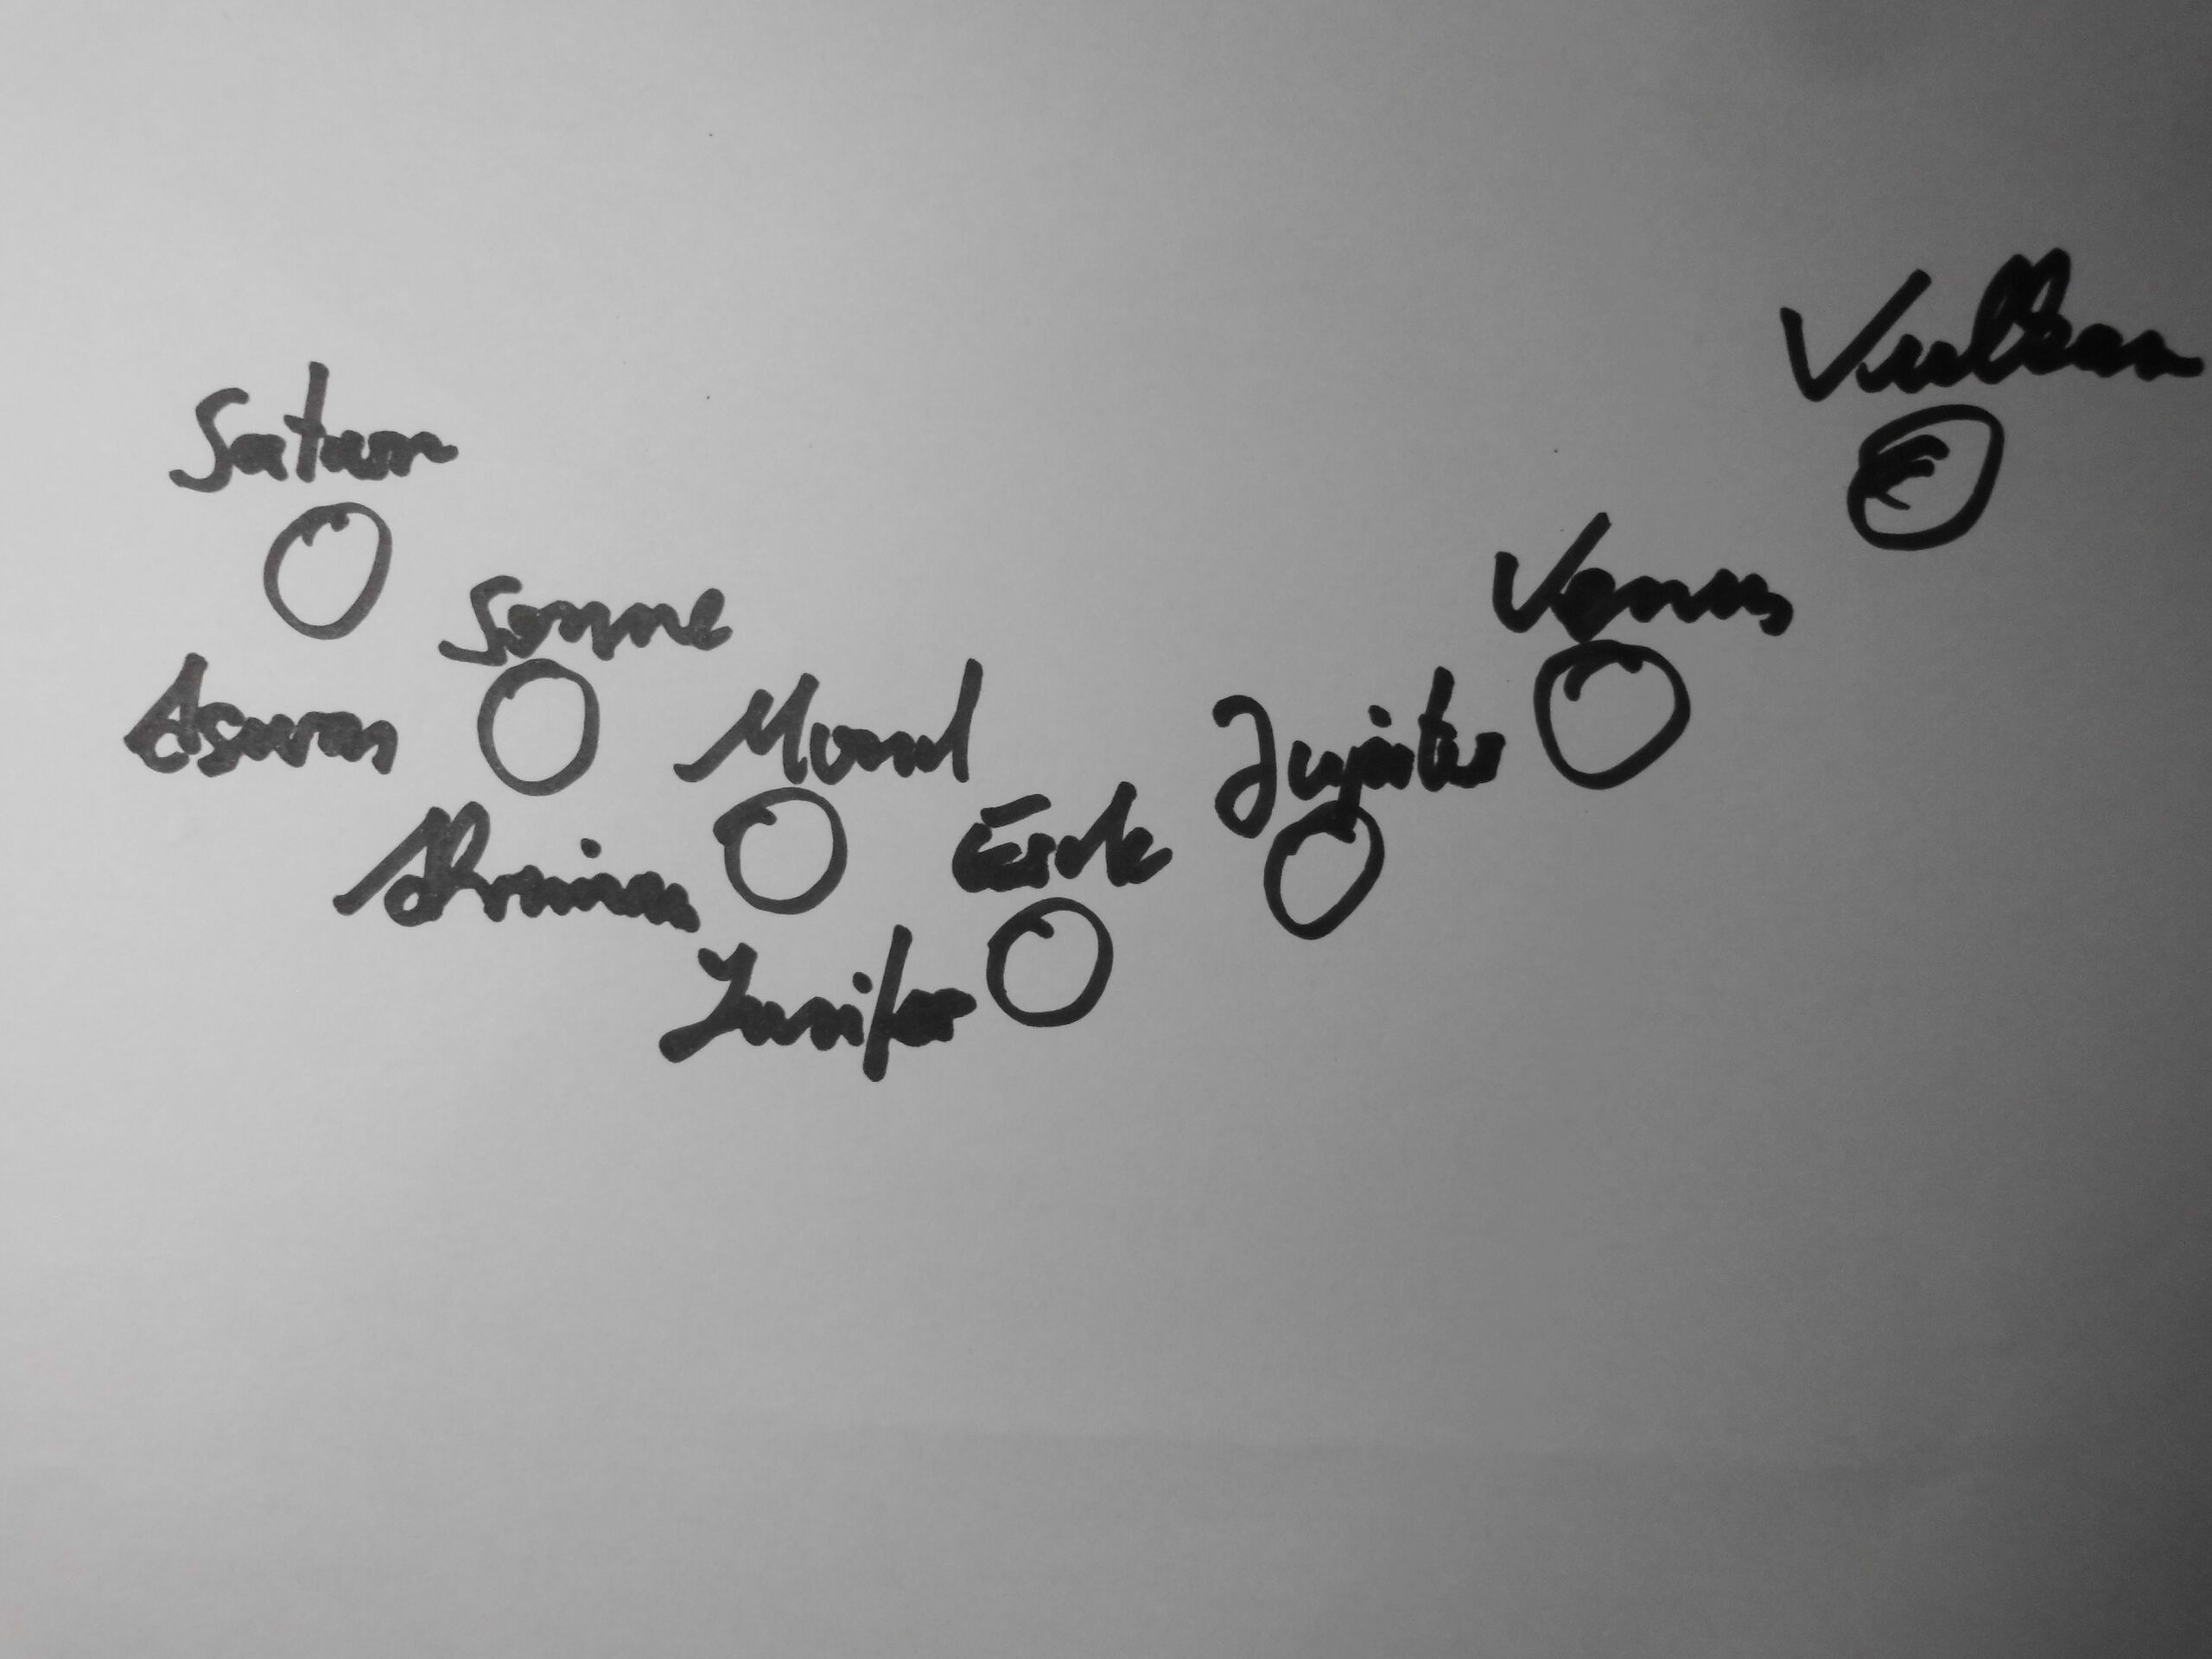 Vulkan
Saturn
Venus
Sonne
Mond
Jupiter
Asuras
Erde
Ahriman
Luzifer